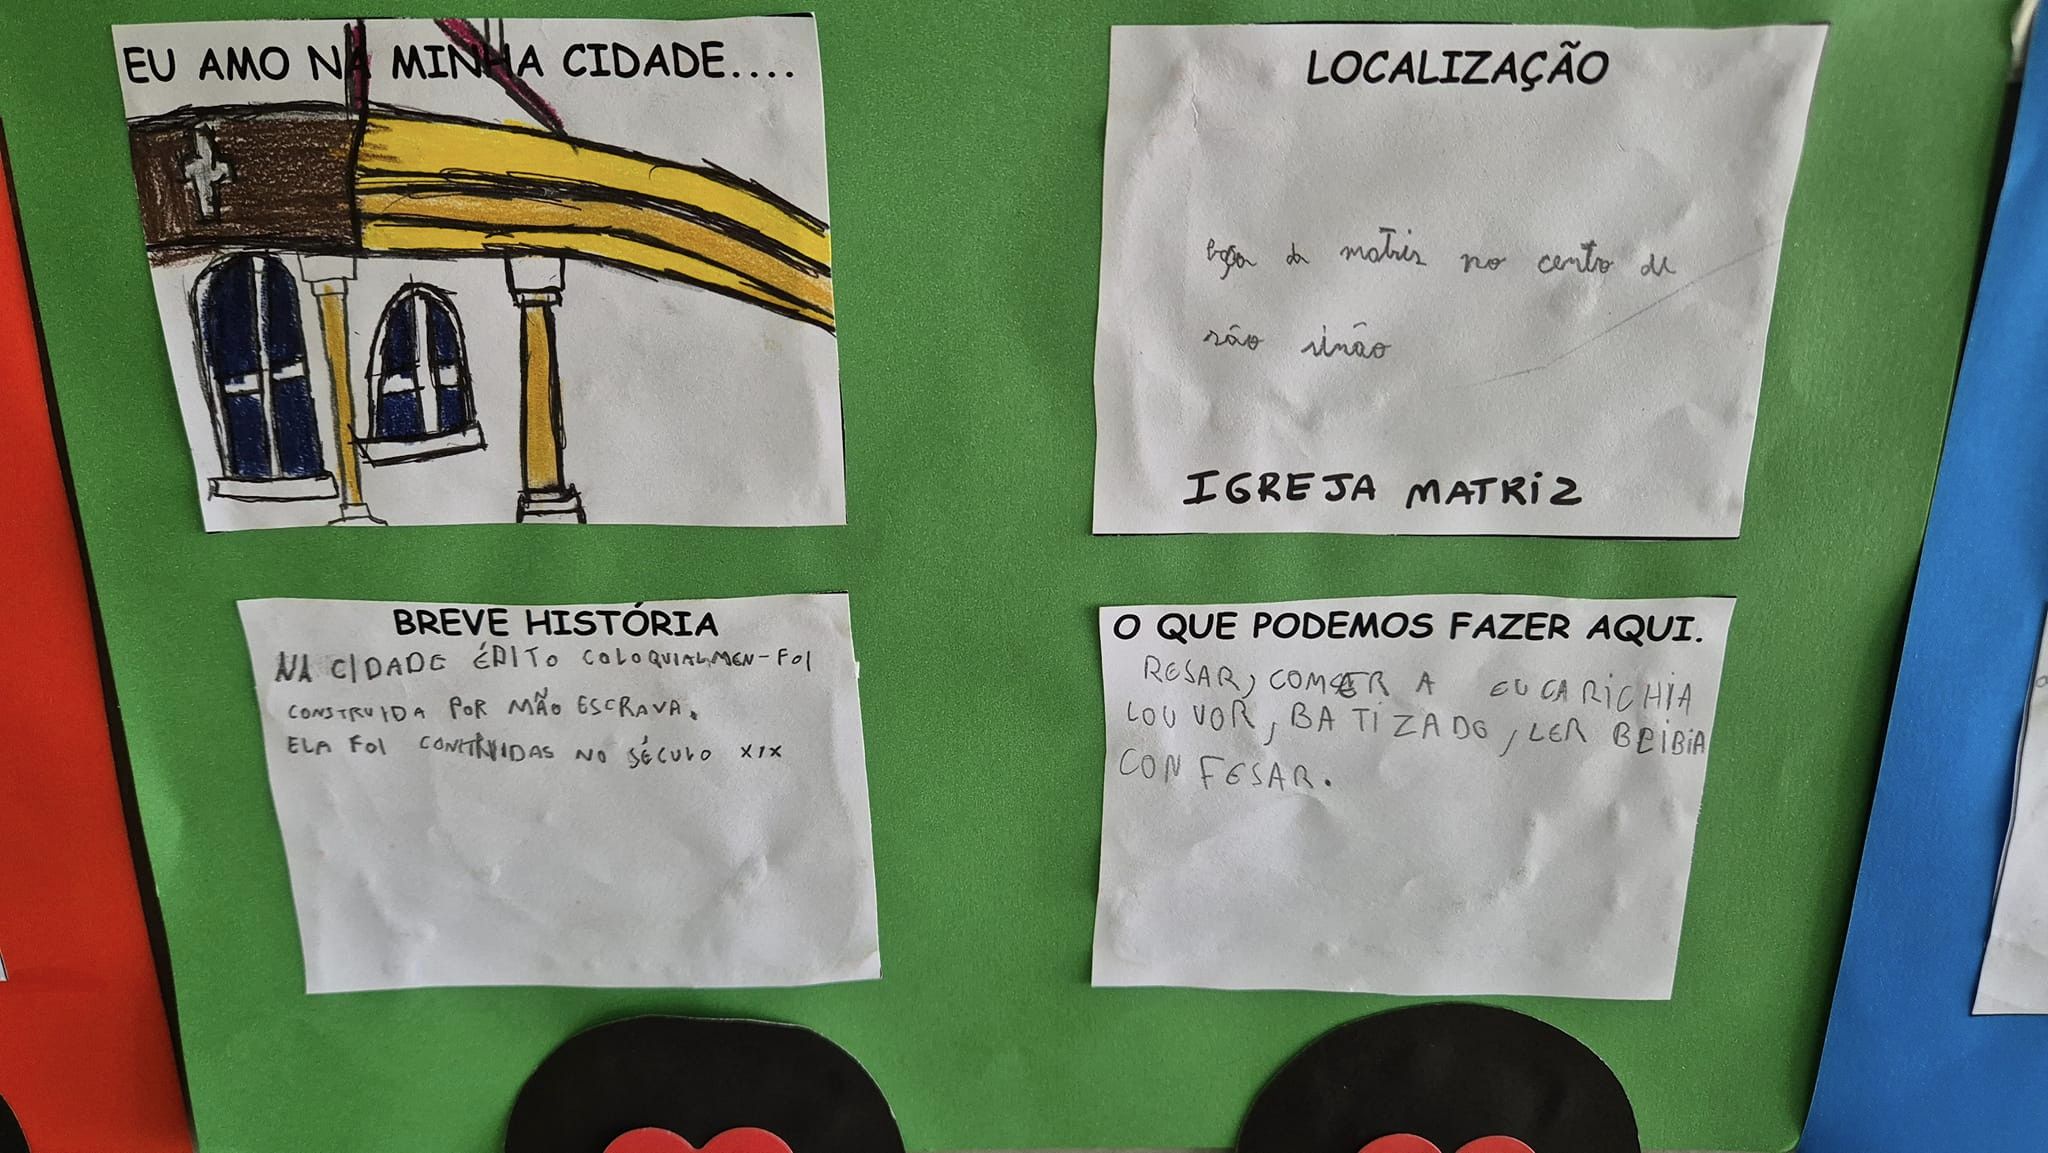 EU AMO NA MINHA CIDADE....
LOCALIZAÇÃO
da matriz no centro de
são simão
IGREJA MATRIZ
BREVE HISTÓRIA
NA CIDADE É DITO COLOQUIALMEN-FOI
CONSTRUIDA POR MÃO ESCRAVA.
ELA FOI CONTRUIDAS NO SÉCULO XIX
O QUE PODEMOS FAZER AQUI.
RESAR, COMER A EUCARICHIA
LOUVOR, BATIZADO, LER BEIBIA
CONFESAR.